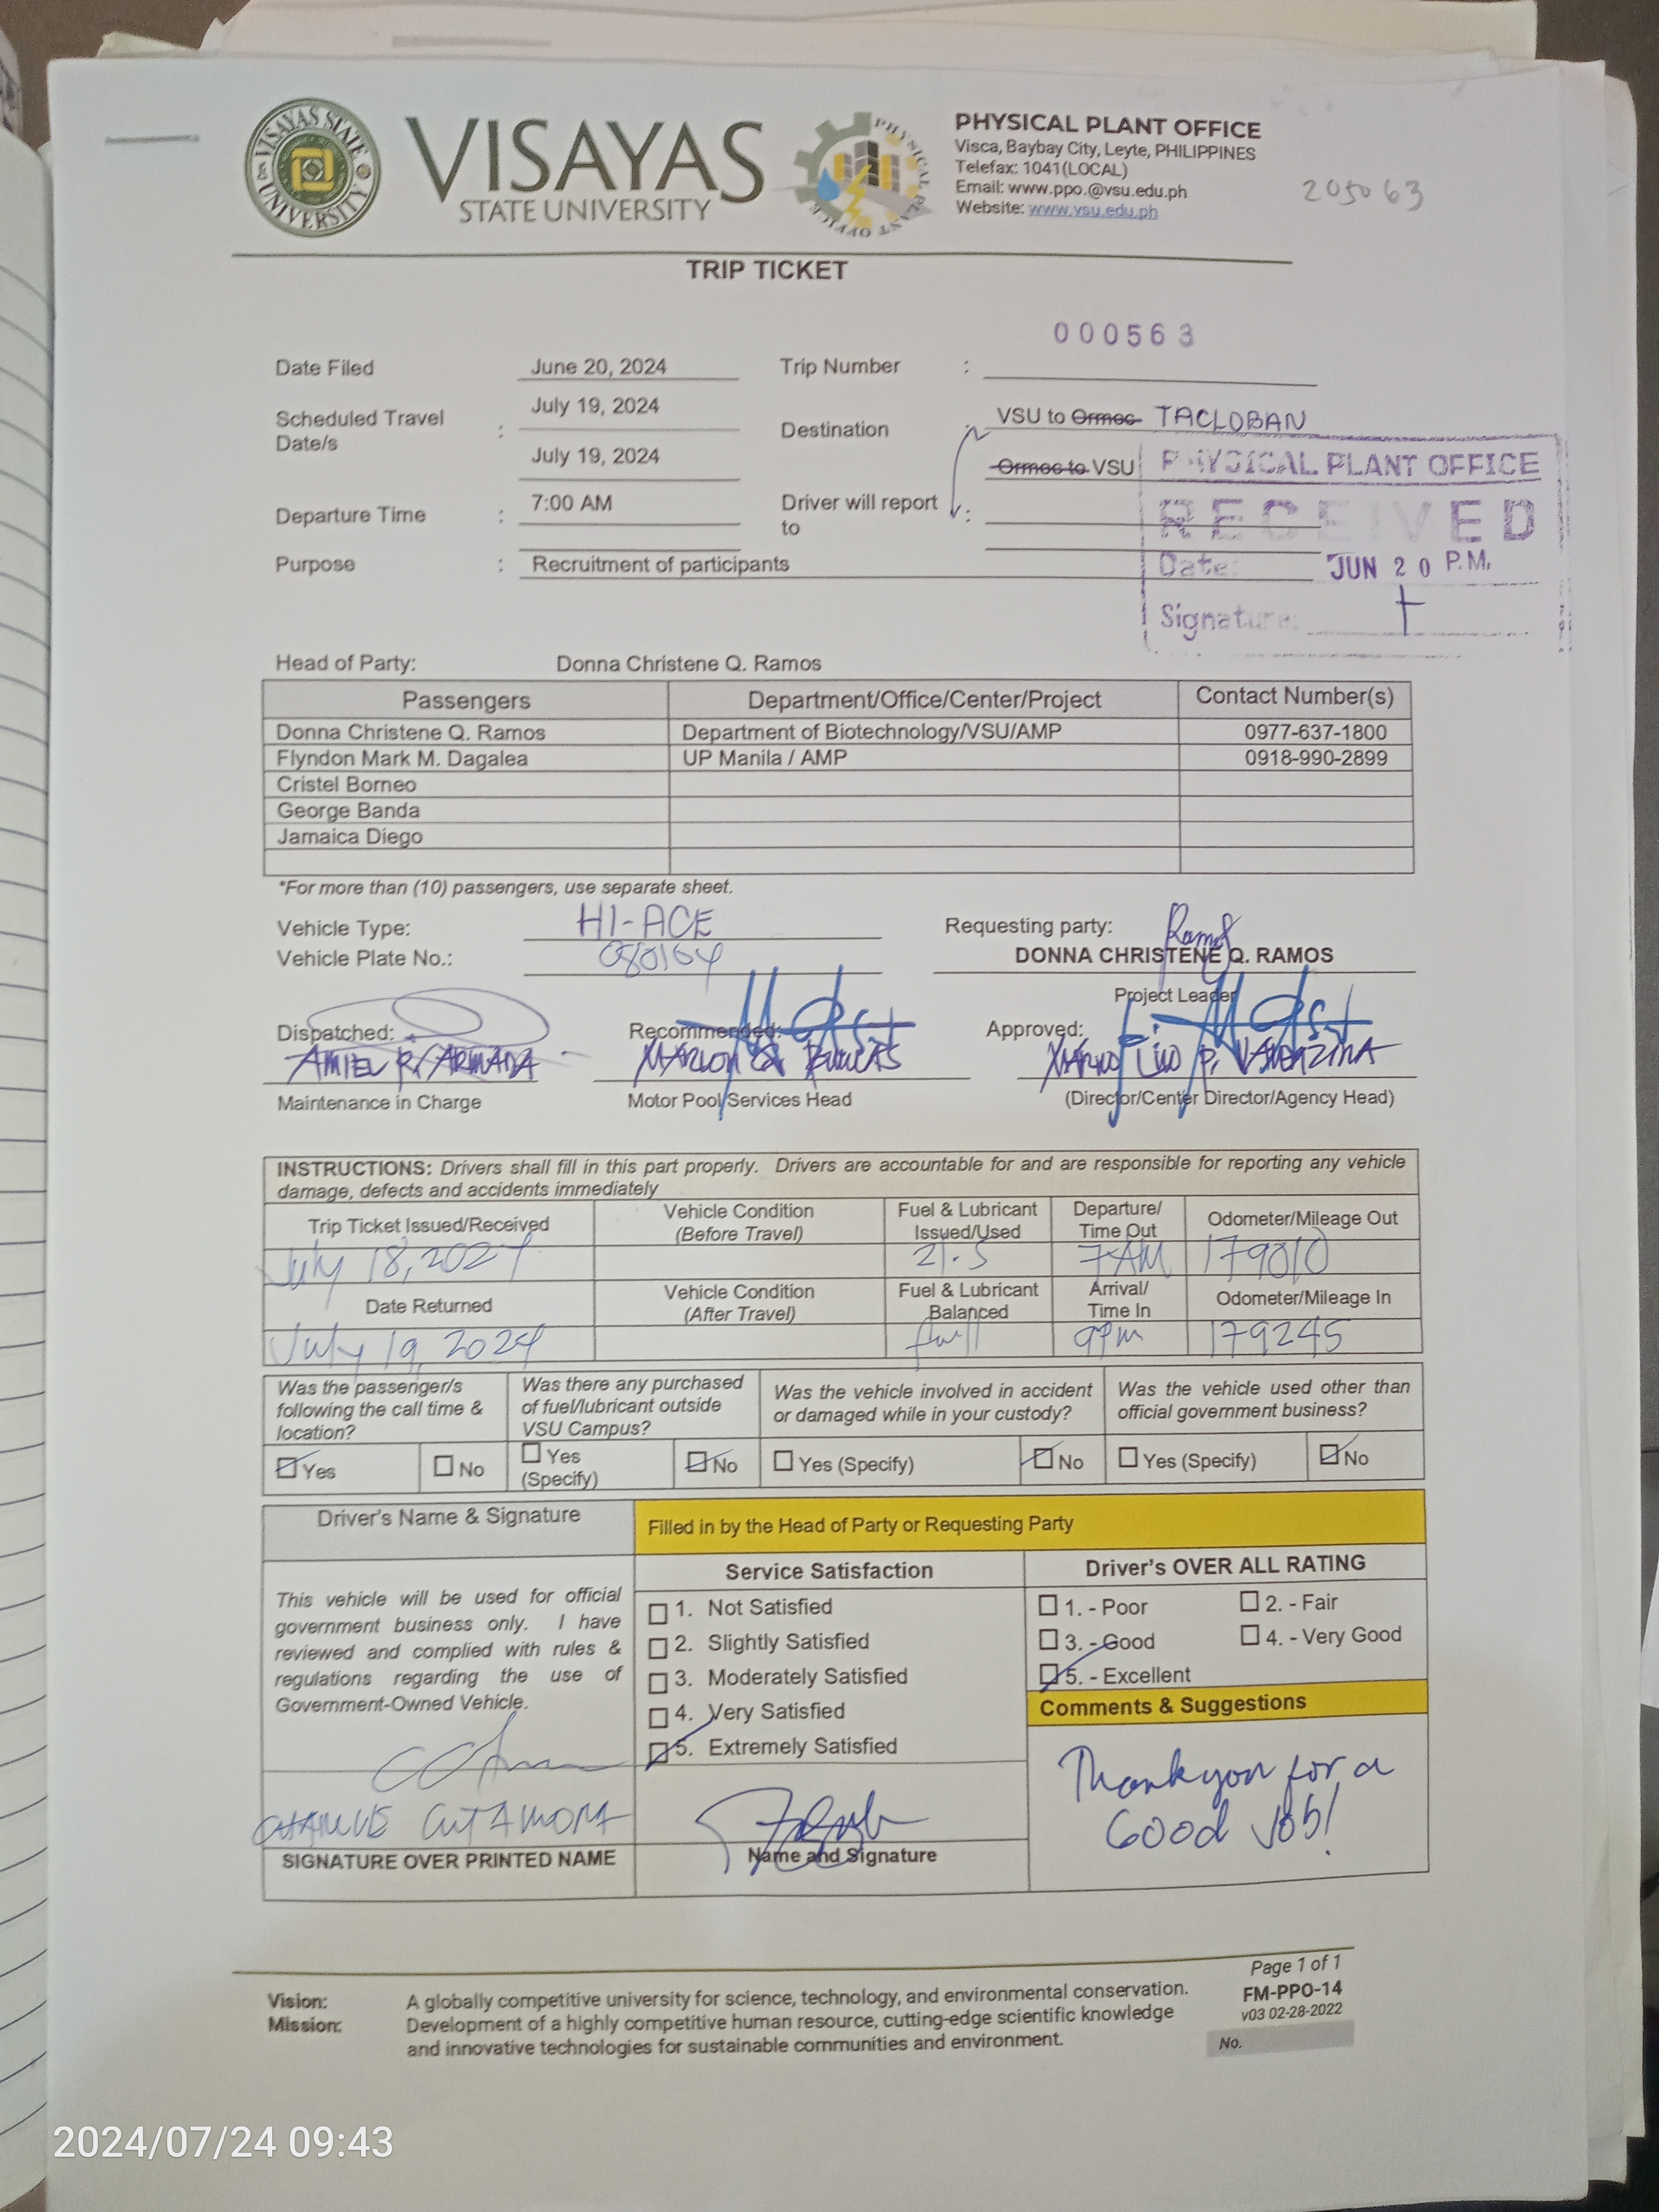 VISAYAS STATE UNIVERSITY
VISAYAS
STATE UNIVERSITY
PHYSICAL PLANT OFFICE
PHYSICAL PLANT OFFICE
Visca, Baybay City, Leyte, PHILIPPINES
Telefax: 1041(LOCAL)
Email: www.ppo.@vsu.edu.ph
Website: www.vsu.edu.ph
205063
TRIP TICKET
000563
Date Filed June 20, 2024 Trip Number :
Scheduled Travel Date/s : July 19, 2024 Destination : VSU to Ormoc TACLOBAN
July 19, 2024 Ormoc to VSU
Departure Time : 7:00 AM Driver will report to :
Purpose : Recruitment of participants
PHYSICAL PLANT OFFICE
RECEIVED
Date: JUN 20 P.M.
Signature:
Head of Party: Donna Christene Q. Ramos
Passengers Department/Office/Center/Project Contact Number(s)
Donna Christene Q. Ramos Department of Biotechnology/VSU/AMP 0977-637-1800
Flyndon Mark M. Dagalea UP Manila / AMP 0918-990-2899
Cristel Borneo
George Banda
Jamaica Diego
*For more than (10) passengers, use separate sheet.
Vehicle Type: HI-ACE Requesting party:
Vehicle Plate No.: 080164 DONNA CHRISTENE Q. RAMOS
Project Leader
Dispatched: Recommended: Approved:
AMIEL R. ARMADA MARLON
Maintenance in Charge Motor Pool Services Head (Director/Center Director/Agency Head)
INSTRUCTIONS: Drivers shall fill in this part properly. Drivers are accountable for and are responsible for reporting any vehicle
damage, defects and accidents immediately
Trip Ticket Issued/Received Vehicle Condition (Before Travel) Fuel & Lubricant Issued/Used Departure/ Time Out Odometer/Mileage Out
July 18, 2024 21.5 7AM 179010
Date Returned Vehicle Condition (After Travel) Fuel & Lubricant Balanced Arrival/ Time In Odometer/Mileage In
July 19, 2024 full 9PM 179245
Was the passenger/s following the call time & location? Was there any purchased of fuel/lubricant outside VSU Campus? Was the vehicle involved in accident or damaged while in your custody? Was the vehicle used other than official government business?
Yes No Yes (Specify) No Yes (Specify) No Yes (Specify) No
Driver's Name & Signature Filled in by the Head of Party or Requesting Party
Service Satisfaction Driver's OVER ALL RATING
This vehicle will be used for official
government business only. I have
reviewed and complied with rules &
regulations regarding the use of
Government-Owned Vehicle.
1. Not Satisfied
2. Slightly Satisfied
3. Moderately Satisfied
4. Very Satisfied
5. Extremely Satisfied
1. - Poor 2. - Fair
3. - Good 4. - Very Good
5. - Excellent
Comments & Suggestions
Thank you for a
Good Job!
SIGNATURE OVER PRINTED NAME Name and Signature
Page 1 of 1
FM-PPO-14
v03 02-28-2022
No.
Vision: A globally competitive university for science, technology, and environmental conservation.
Mission: Development of a highly competitive human resource, cutting-edge scientific knowledge
and innovative technologies for sustainable communities and environment.
2024/07/24 09:43